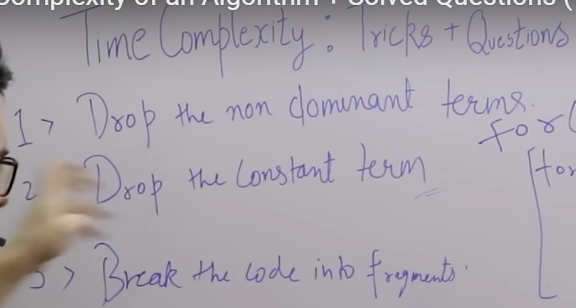 Complexity of an Algorithm + Solved Questions (
Time Complexity: Tricks + Questions
1> Drop the non dominant terms.
for(
2 Drop the constant term
for
3> Break the code into fragments.